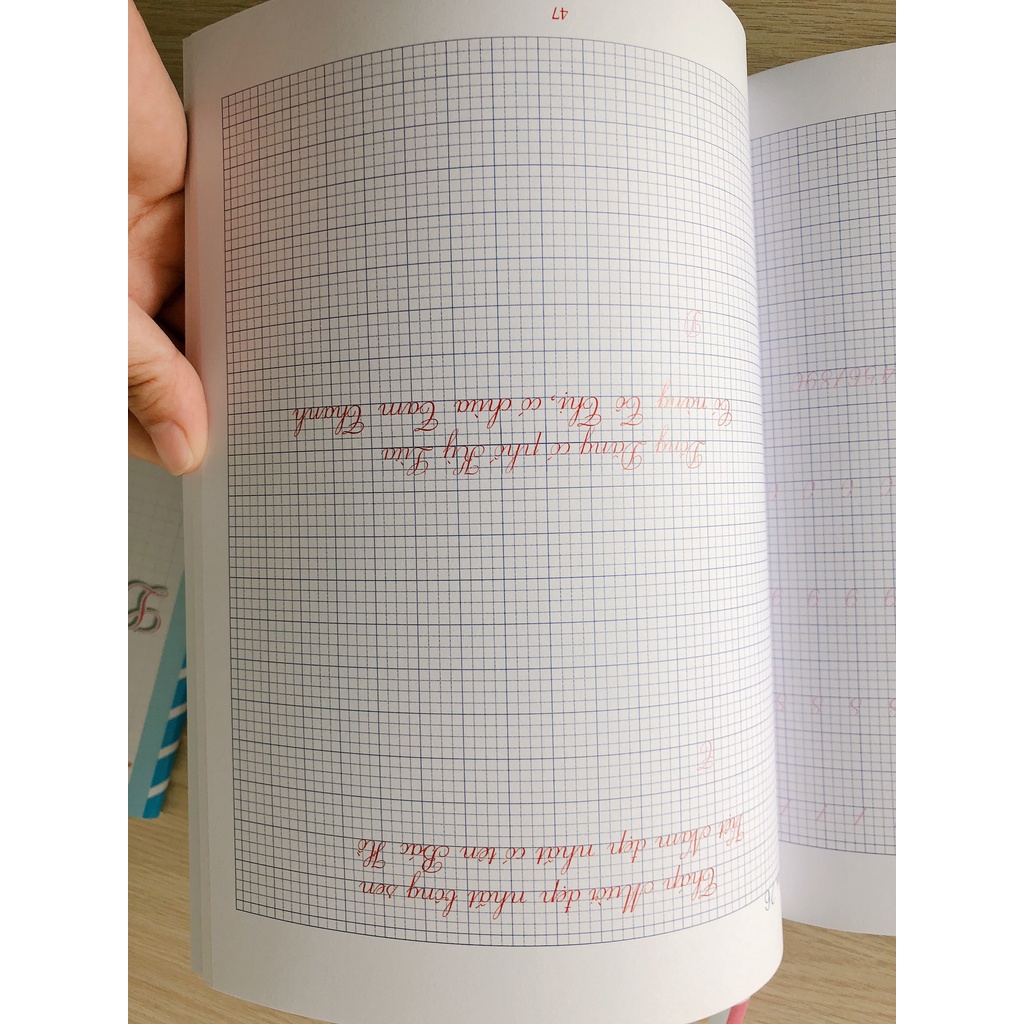 Tháp Mười đẹp nhất bông sen
Việt Nam đẹp nhất có tên Bác Hồ
T
Đồng Đăng có phố Kỳ Lừa
Có nàng Tô Thị, có chùa Tam Thanh
Đ
47